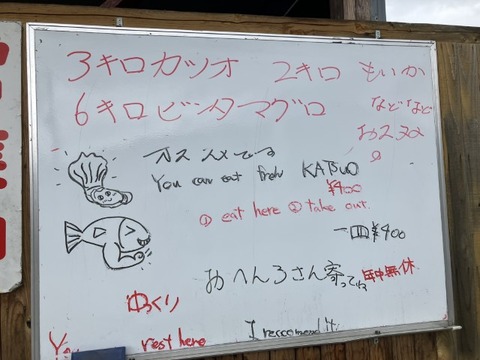 3キロカツオ 2キロ もいか
6キロビンタマグロ などなど
おススメ
オススメです
You can eat fresh KATSUO
¥400
① eat here ② take out
一皿¥400
おへんろさん寄ってね 年中無休
ゆっくり
rest here I reccomend it